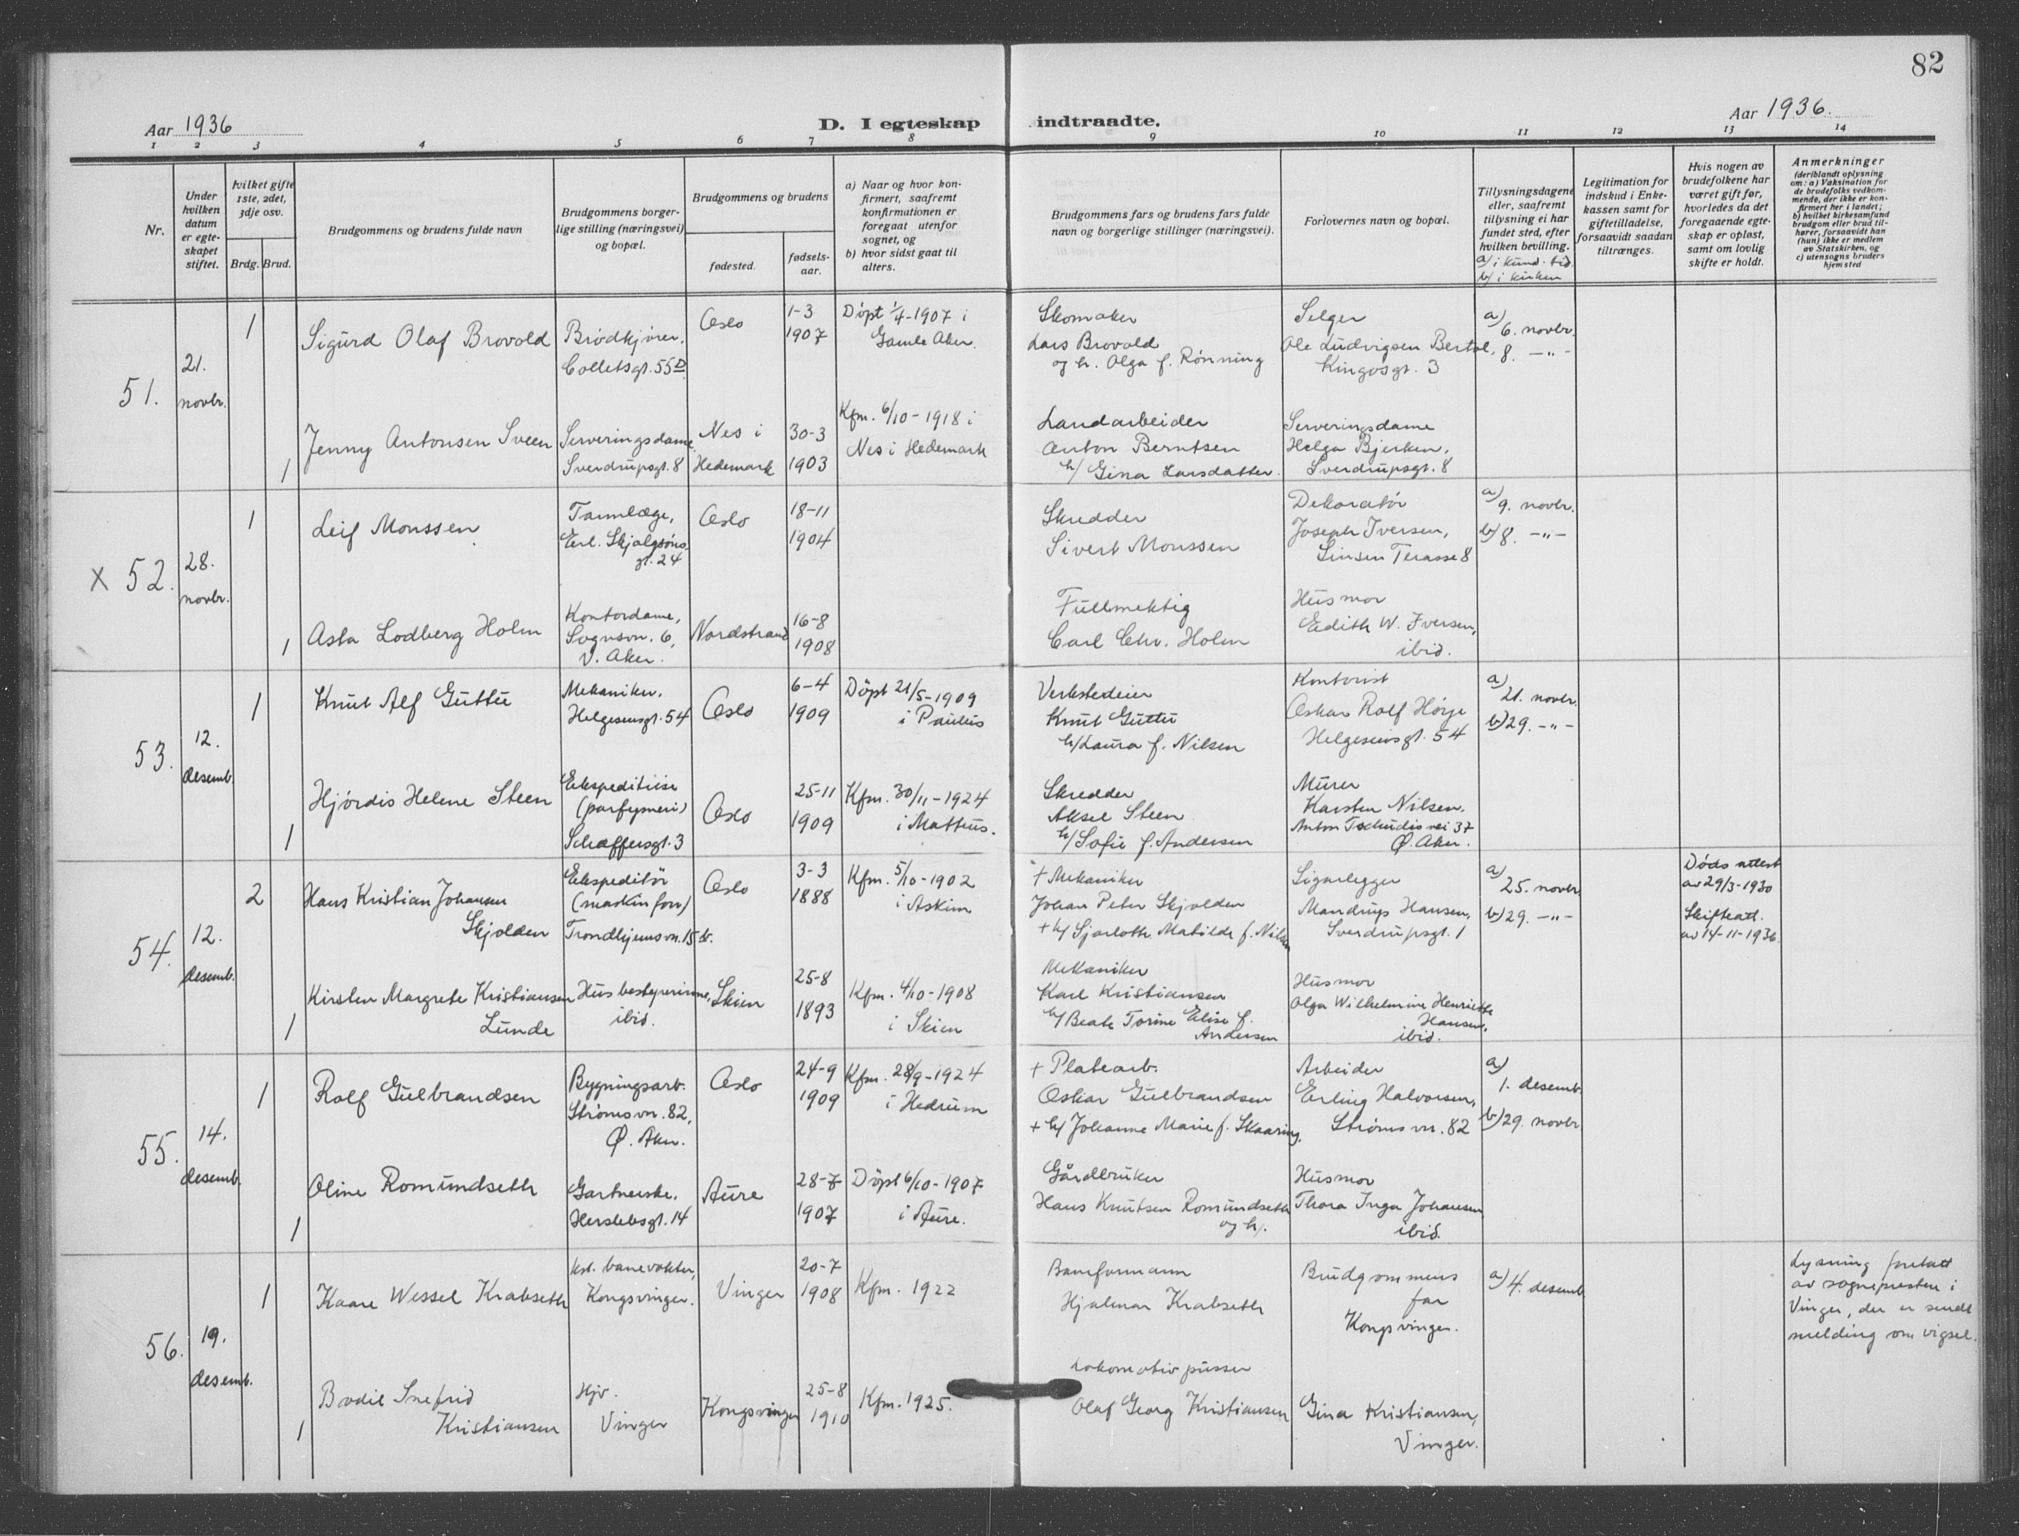 82
Aar 1936
D. I egteskap indtraadte.
Aar 1936.
1 2 3 4 5 6 7 8 9 10 11 12 13 14
Nr.
Under
hvilken
datum
er egte-
skapet
stiftet.
hvilket gifte
1ste, 2det,
3dje osv.
Brdg. Brud.
Brudgommens og brudens fulde navn
Brudgommens borger-
lige stilling (næringsvei)
og bopæl.
Brudgommens og brudens
fødested.
fødsels-
aar.
a) Naar og hvor kon-
firmert, saafremt
konfirmationen er
foregaat utenfor
sognet, og
b) hvor sidst gaat til
alters.
Brudgommens fars og brudens fars fulde
navn og borgerlige stillinger (næringsvei).
Forlovernes navn og bopæl.
Tillysningsdagene
eller, saafremt
tillysning ei har
fundet sted, efter
hvilken bevilling.
a) i kund. tid.
b) i kirken
Legitimation for
indskud i Enke-
kassen samt for
giftetilladelse,
forsaavidt saadan
tiltrænges.
Hvis nogen av
brudefolkene har
været gift før,
hvorledes da det
foregaaende egte-
skap er opløst,
samt om lovlig
skifte er holdt.
Anmerkninger
(deriblandt oplysning
om: a) Vaksination for
de brudefolks vedkom-
mende, der ikke er kon-
firmert her i landet;
b) hvilket kirkesamfund
brudgom eller brud til-
hører, forsaavidt han
(hun) ikke er medlem
av Statskirken, og
c) utensogns bruders
hjemsted
51.
21.
novbr.
1
Sigurd Olaf Brovold
Brødkjører.
Colletsgt. 55D
Oslo
1-3
1907
Døpt 1/4-1907 i
Gamle Aker.
Skomaker
Lars Brovold
og h. Olga f. Rønning
Selger
Ole Ludvigsen Bertol,
Kingosgt. 3
a)
6. novbr.
8. -"-
1
Jenny Antonsen Sveen
Serveringsdame
Sverdrupsgt. 8
Nes i
Hedemark
30-3
1903
Kfm. 6/10-1918 i
Nes i Hedemark
Landarbeider
Anton Berntsen
h/ Gina Larsdatter.
Serveringsdame
Helga Bjerken,
Sverdrupsgt. 8
x 52.
28.
novbr.
1
Leif Monssen
Tannlæge,
Erl. Skjalgsøns
gt. 24
Oslo
18-11
1904
Skredder
Sivert Monssen
Dekoratør
Joseph Iversen,
Sinsen Terasse 8
a)
9. novbr.
b) 8. -"-
1
Asta Lodberg Holm
Kontordame,
Sognsvn. 6,
V. Aker.
Nordstrand
16-8
1908
Fullmektig
Carl Chr. Holm
Husmor
Edith W. Iversen,
ibid.
53.
12.
desemb.
1
Knut Alf Guttu
Mekaniker.
Helgesensgt. 54
Oslo
6-4
1909
Døpt 21/5-1909
i Paulus
Verkstedeier
Knut Guttu
h/ Laura f. Nilsen
Kontorist
Oskar Rolf Høye
Helgesensgt. 54
a)
21. novbr.
b) 29. -"-
1
Hjørdis Helene Steen
Ekspeditrise
(parfymeri)
Schæffersgt. 3
Oslo
25-11
1909
Kfm. 30/11-1924
i Matteus.
Skredder
Aksel Steen
h/ Sofie f. Andersen
Murer
Karsten Nilsen.
Anton Tschudis vei 37
Ø. Aker.
54.
12.
desemb.
2
Hans Kristian Johansen
Skjolden
Ekspeditør
(maskin forr)
Trondhjemsvn. 15 b.
Oslo
3-3
1888
Kfm. 5/10-1902
i Askim
+ Mekaniker
Johan Peter Skjolden
+ h/ Sjarlotte Matilde f. Nilsen
Sigarlegger
Mandrup Hansen,
Sverdrupsgt. 1
a)
25. novbr
b) 29. -"-
Døds attest
av 29/3-1930
Skifteatt.
av 14-11-1936
1
Kirsten Margrete Kristiansen
Lunde
Husbestyrerinne,
ibid.
Skien
25-8
1893
Kfm. 4/10-1908
i Skien
Mekaniker
Karl Kristiansen
h/ Beate Torine Elise f.
Andersen
Husmor
Olga Wilhelmine Henriette
Hansen,
ibid.
55.
14.
desemb.
1
Rolf Gulbrandsen
Bygningsarb.
Strømsvn. 82,
Ø. Aker.
Oslo
24-9
1909
Kfm. 28/9-1924
i Hedrum
+ Platearb.
Oskar Gulbrandsen
+ h/ Johanne Marie f. Skaaring.
Arbeider
Erling Halvorsen,
Strømsvn. 82
a)
1. desemb.
b) 29. novbr
1
Oline Romundseth
Gartnerske.
Herslebsgt. 14
Aure
28-7
1907
Døpt 6/10-1907
i Aure.
Gårdbruker
Hans Knutsen Romundseth
og h.
Husmor
Thora Inga Johansen
ibid.
56.
19.
desemb.
1
Kaare Wessel Krabseth
kst. banevokter,
Kongsvinger.
Vinger
20-7
1908
Kfm. 1922
Baneformann
Hjalmar Krabseth
Brudgommens
far
Kongsvinger.
a) 4. desemb.
Lysning foretatt
av sognepresten i
Vinger, der er sendt
melding om vigsel.
1
Bodil Snefrid
Kristiansen
Hjv.
Vinger
Kongsvinger
25-8
1910
Kfm. 1925.
Lokomotivpusser
Olaf Georg Kristiansen
Gina Kristiansen,
Vinger.